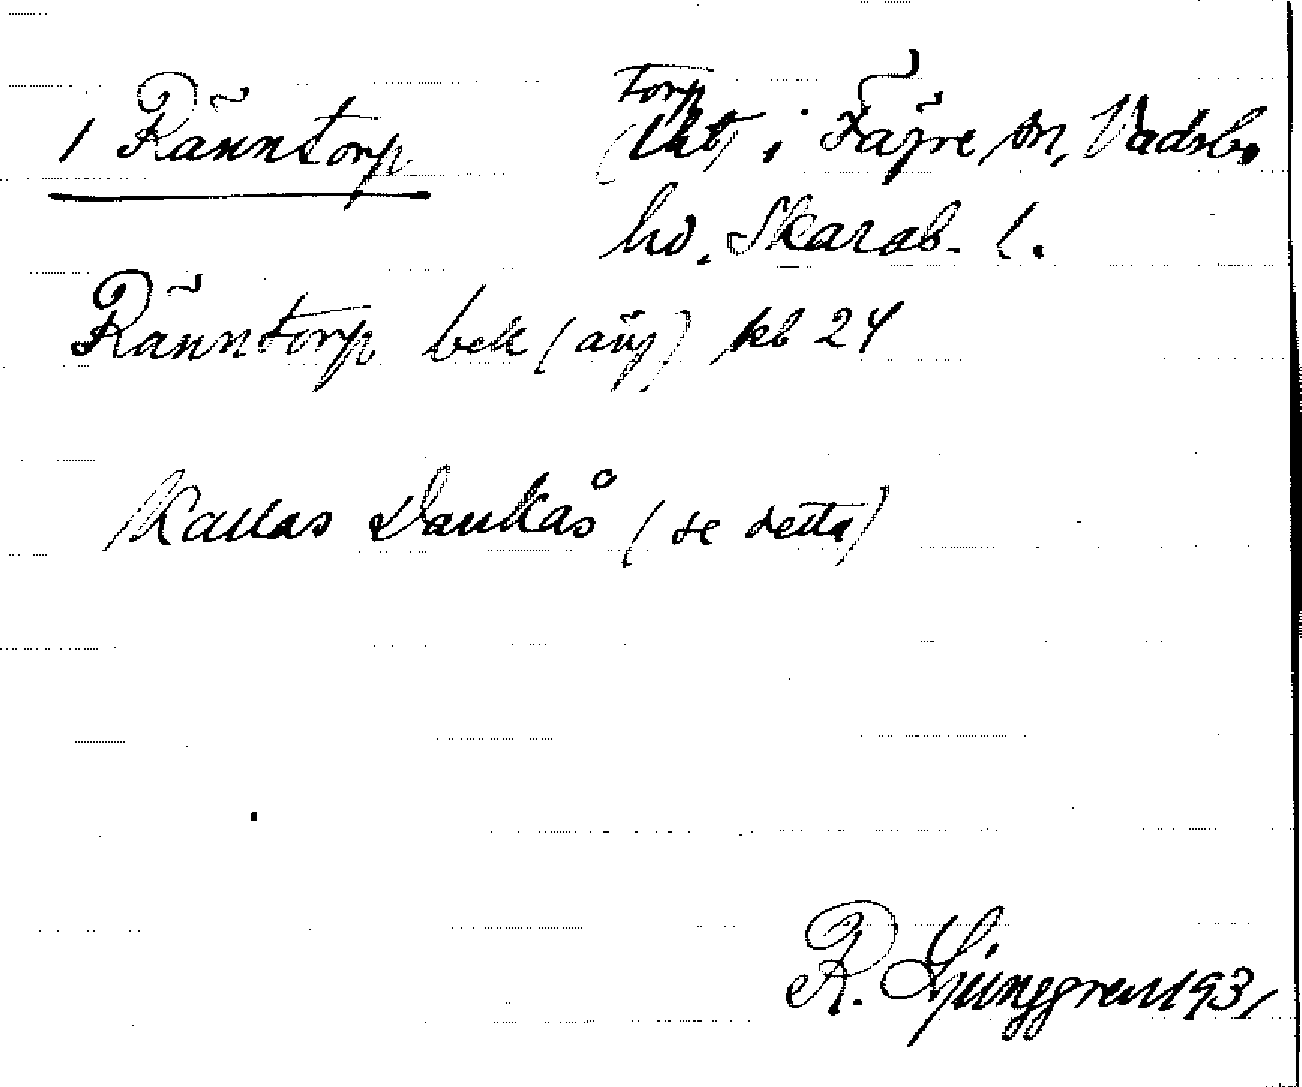 1 Ränntorp torp
(Lht) i Fägre sn, Vadsb.
hd. Skarab. l.
Ränntorp bek (äng) kb 24
Kallas Dankås (se detta)
R. Ljunggren 1931